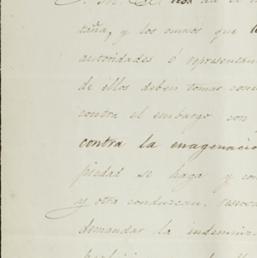 taña, y los mismos que
autoridades ó representan
de ellos deben tomar cono
contra el embargo con
contra la enagenacio
piedad se haga y con
y otra conduzcan,
demandar la indemniz